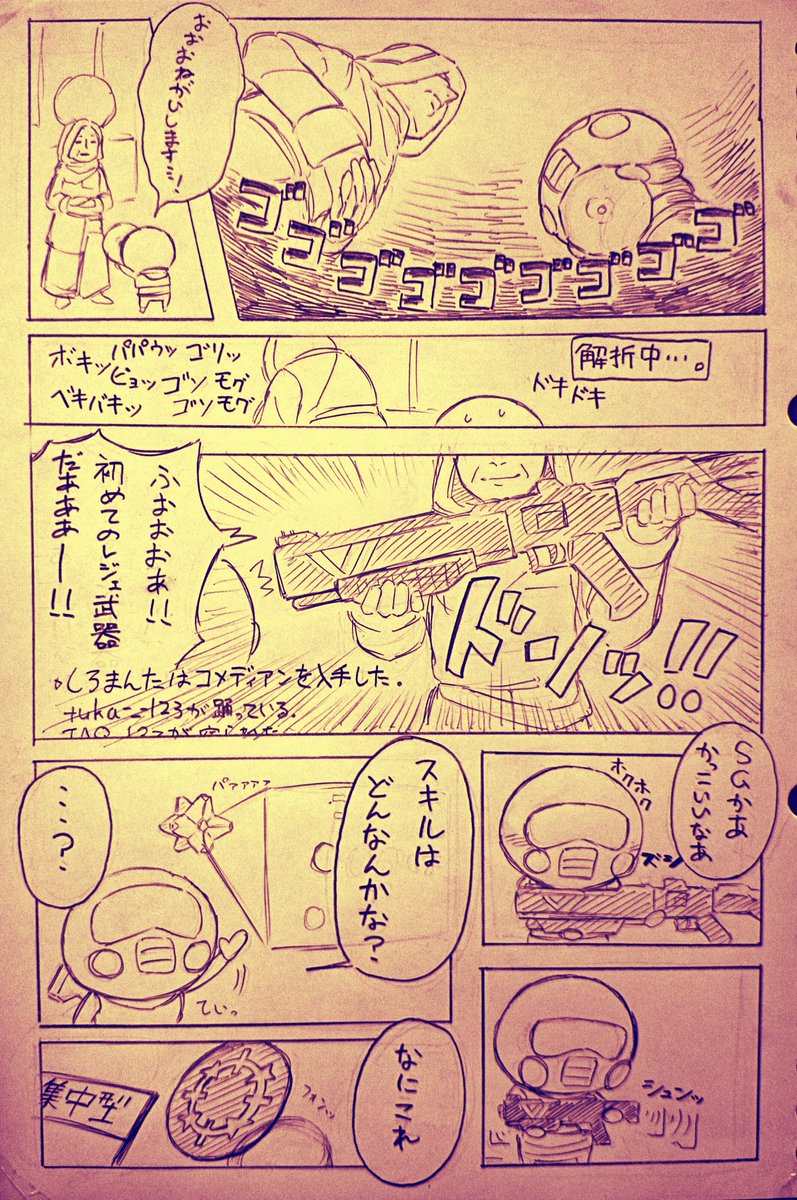 おおおねがいします…!
ゴゴゴゴゴゴゴゴゴ
解折中…。
ドキドキ
ボキッ パパウッ ゴリッ
ピョッ ゴソ モグ
ベキバキッ ゴソモグ
ふぉおおぁ!!
初めてのレジェ武器
だぁああー!!
ドンッ!!
しろまんたはコメディアンを入手した.
が踊っている.
SGかあ
かっこいいなあ
ホクホク
ズシ
スキルは
どんなんかな?
パァァァァ
…?
てぃっ
シュンッ
なにこれ
フォンッ
集中型